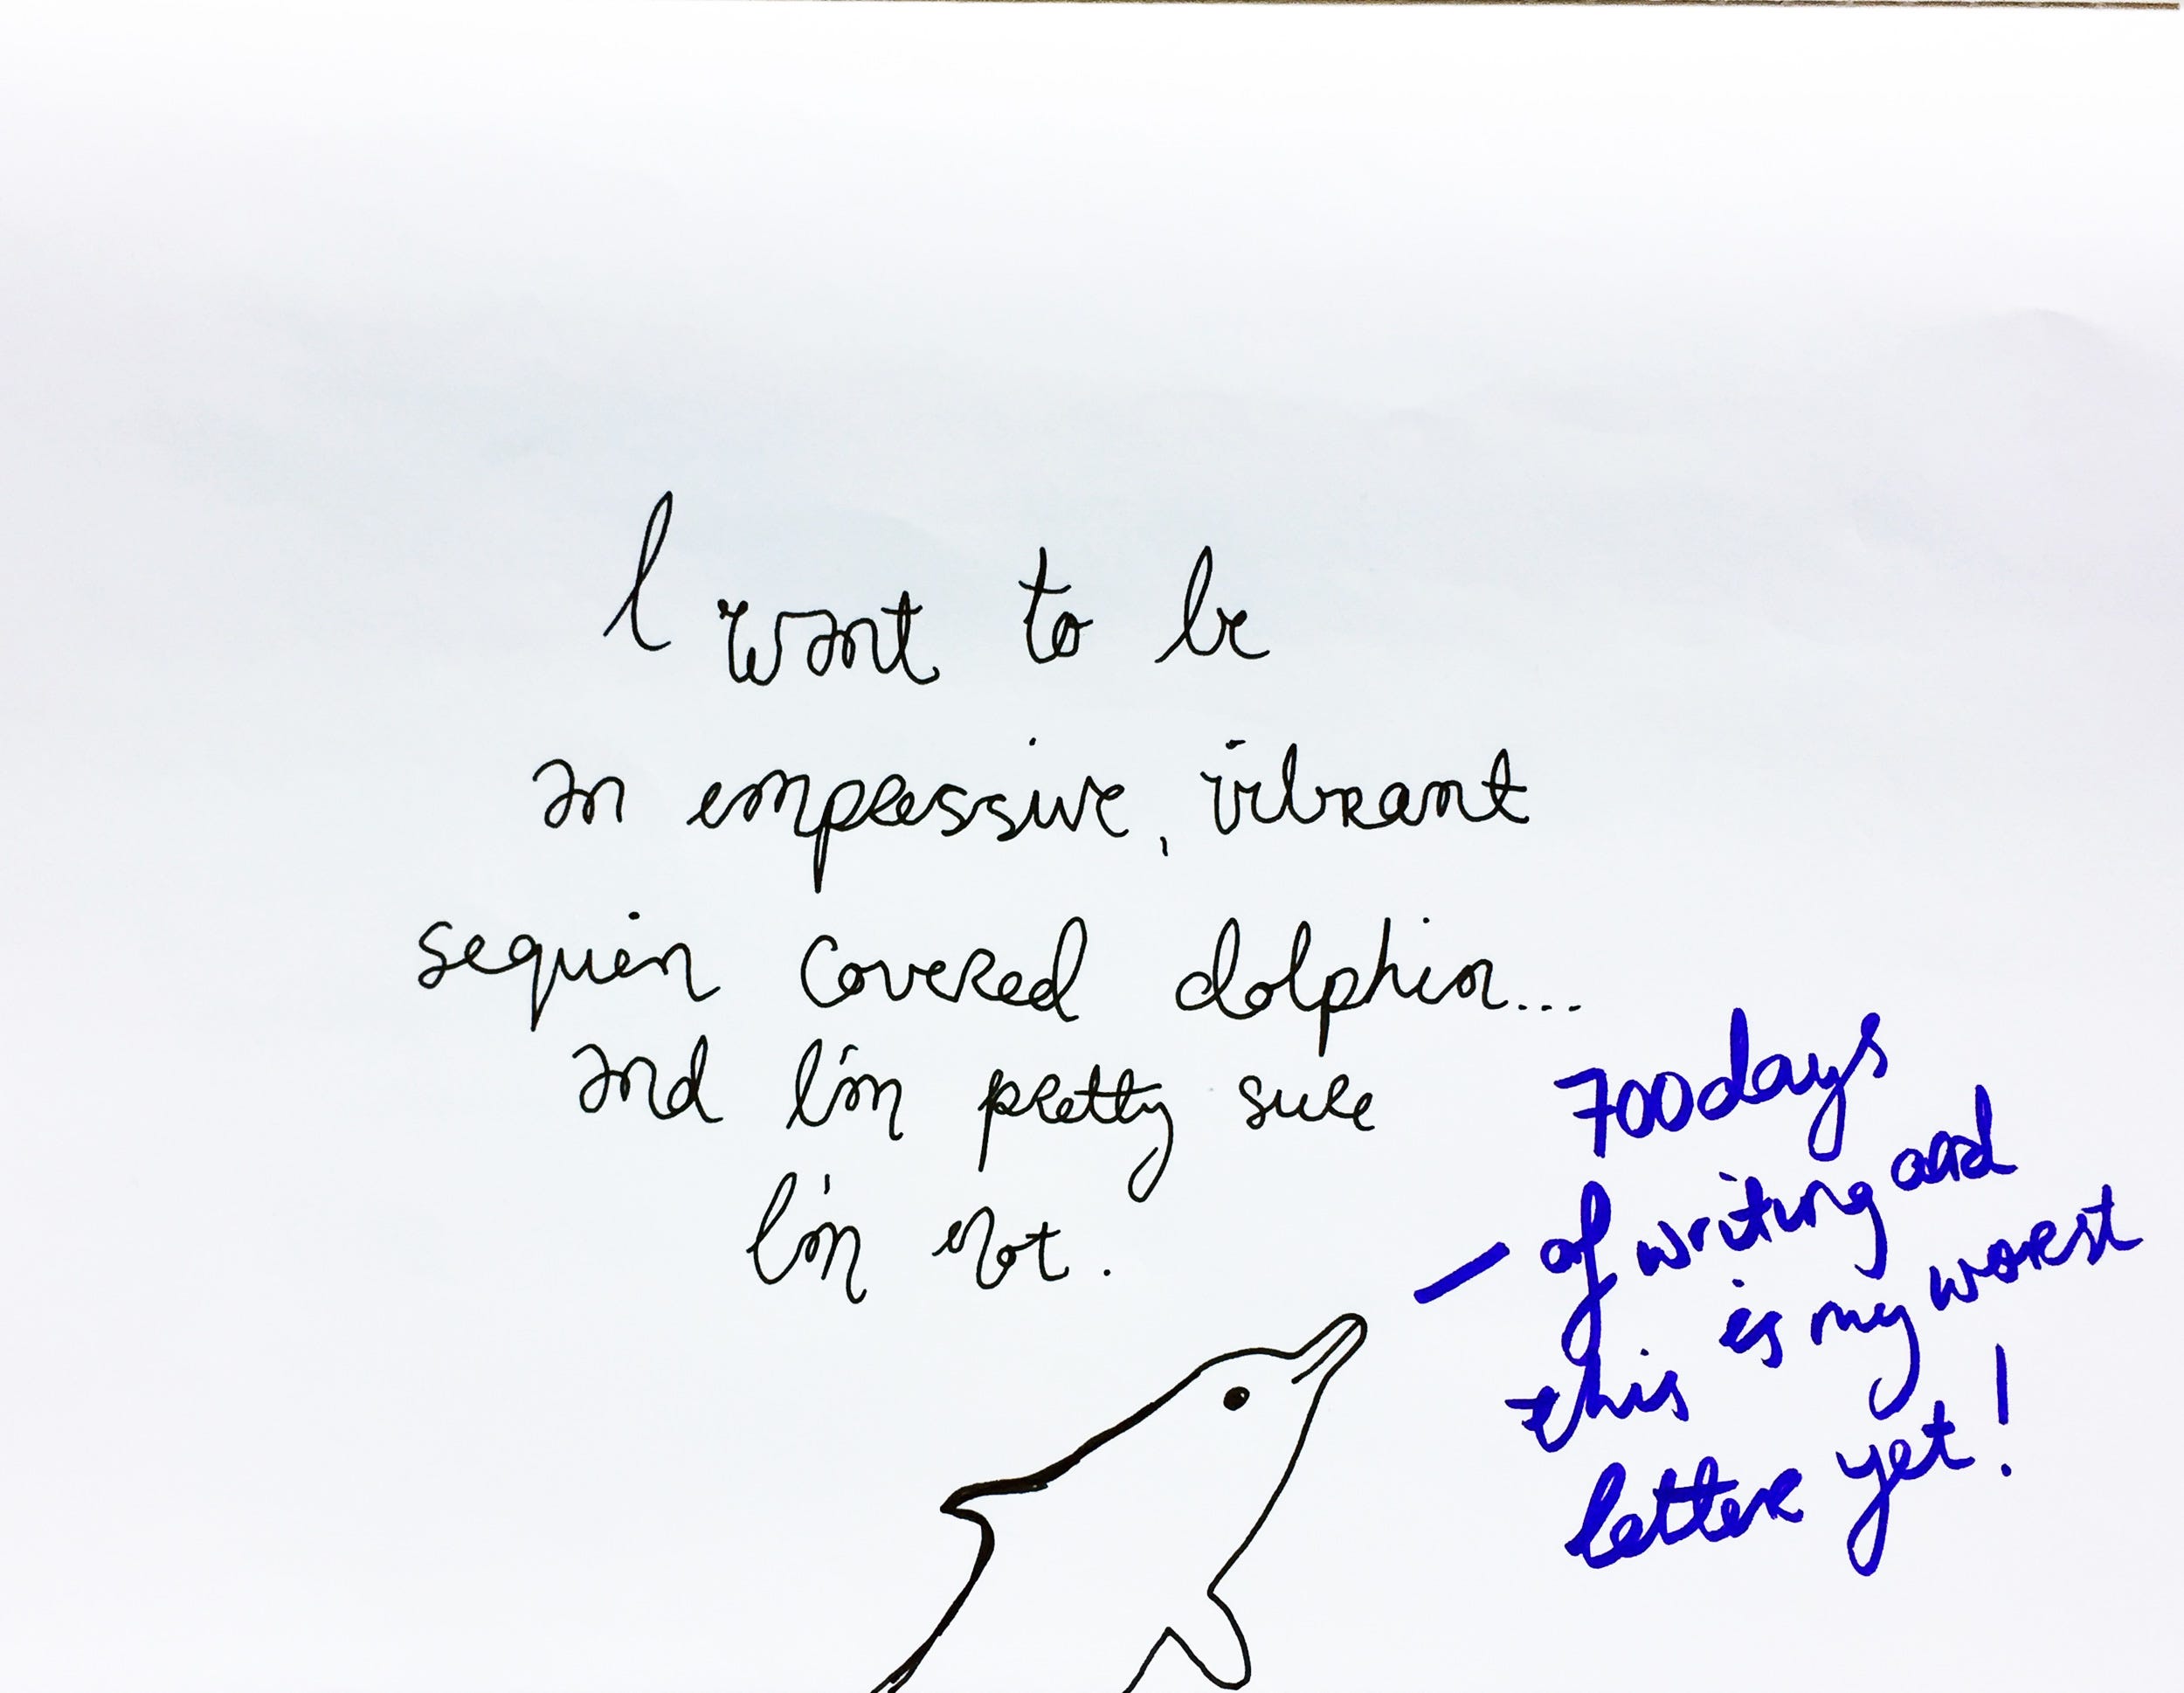 I want to be
an impressive, vibrant
sequin covered dolphin...
and I'm pretty sure
I'm not.
700 days
of writing and
this is my worst
letter yet!